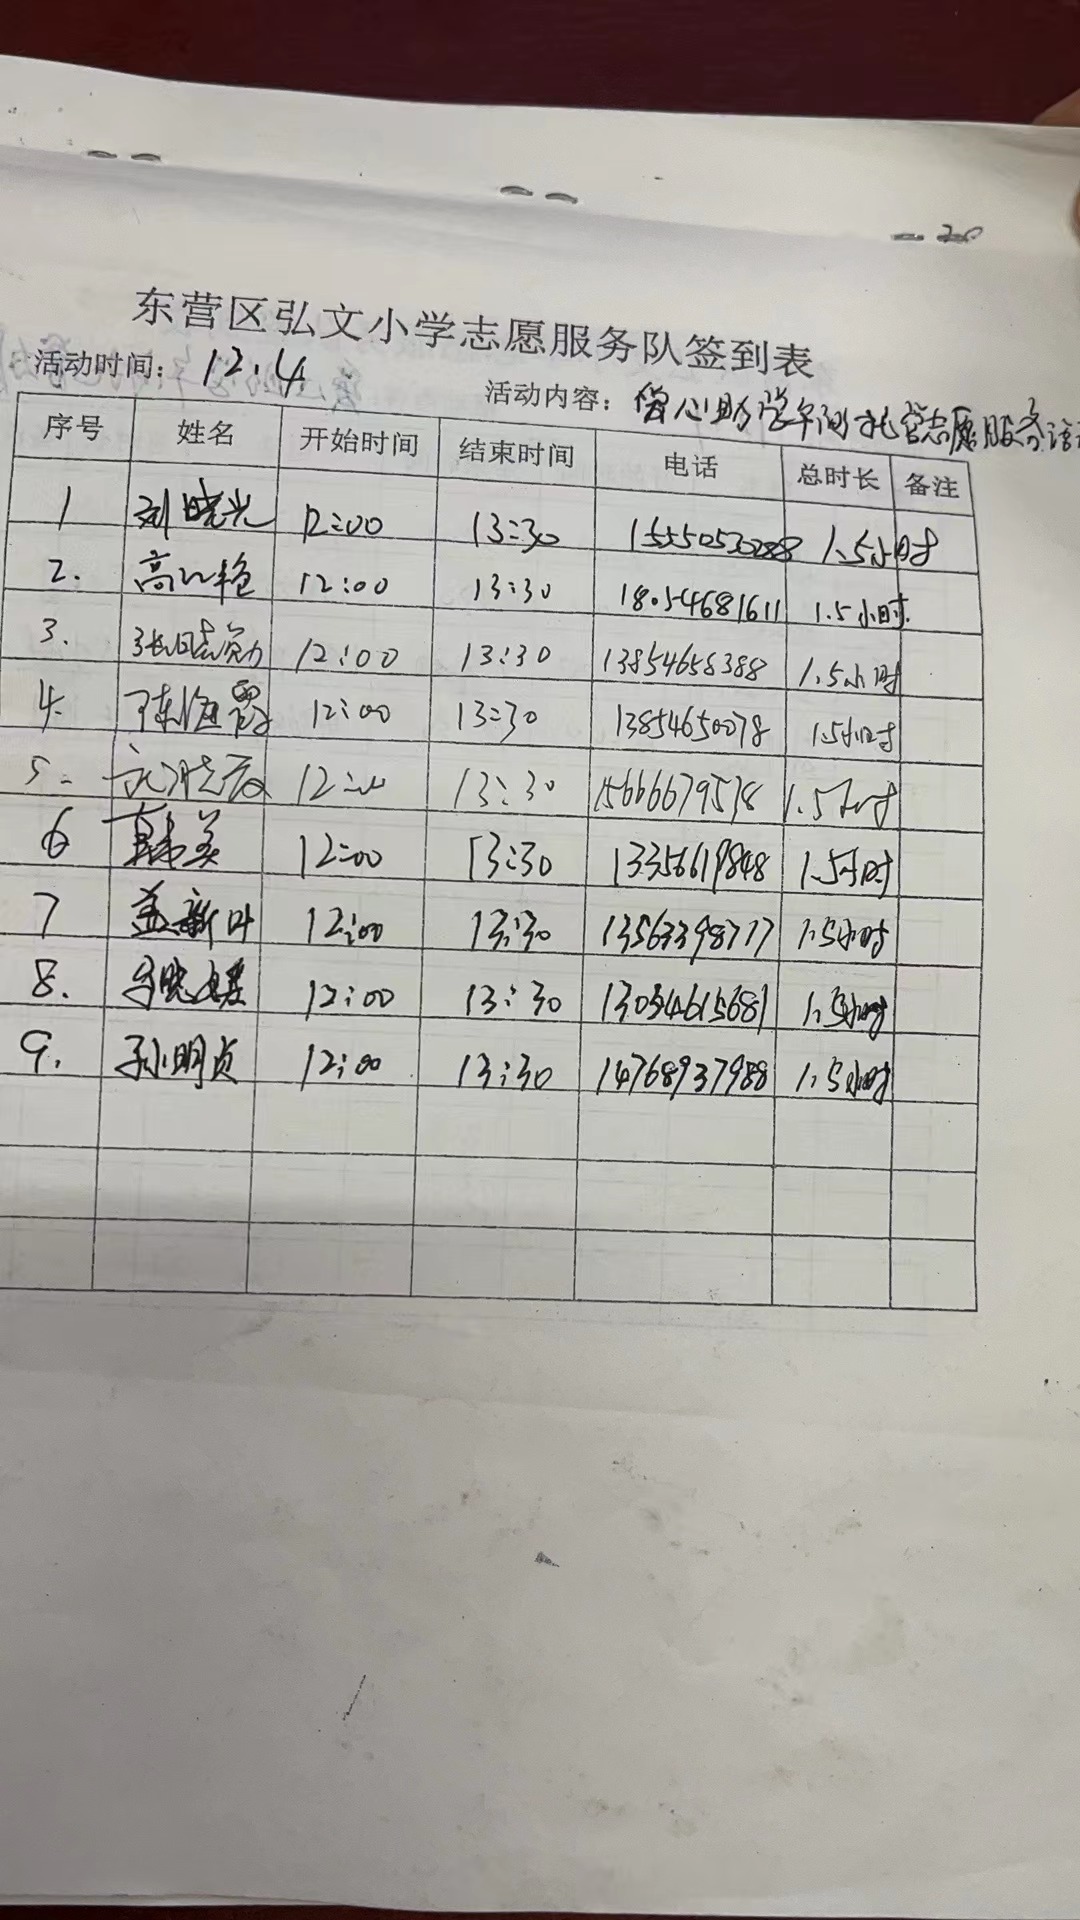 东营区弘文小学志愿服务队签到表
活动时间: 12.4 活动内容: 爱心助学午间托管志愿服务活
序号 姓名 开始时间 结束时间 电话 总时长 备注
1 刘晓光 12:00 13:30 15550530288 1.5小时
2. 高 艳 12:00 13:30 18054681611 1.5小时.
3. 张晓勇 12:00 13:30 13854658388 1.5小时
4. 陈海霞 12:00 13:30 13854650078 1.5小时
5. 12:00 13:30 15666679578 1.5小时
6 韩美 12:00 13:30 13356619848 1.5小时
7 盖新叶 12:00 13:30 13563398717 1.5小时
8. 晓媛 12:00 13:30 13054615681 1.5小时
9. 孙明贞 12:00 13:30 14768937988 1.5小时